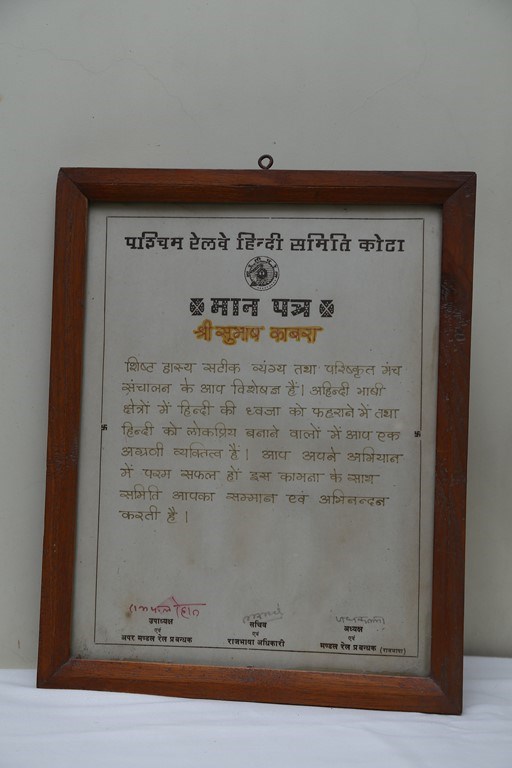 पश्चिम रेलवे हिन्दी समिति कोटा
मान पत्र
श्री सुभाष काबरा
शिष्ट हास्य सटीक व्यंग्य तथा परिष्कृत मंच
संचालन के आप विशेषज्ञ हैं। अहिन्दी भाषी
क्षेत्रों में हिन्दी की ध्वजा को फहराने में तथा
हिन्दी को लोकप्रिय बनाने वालों में आप एक
अग्रणी व्यक्तित्व हैं। आप अपने अभियान
में परम सफल हों इस कामना के साथ
समिति आपका सम्मान एवं अभिनन्दन
करती है।
उपाध्यक्ष
एवं
अपर मण्डल रेल प्रबन्धक
सचिव
एवं
राजभाषा अधिकारी
अध्यक्ष
एवं
मण्डल रेल प्रबन्धक (राजभाषा)